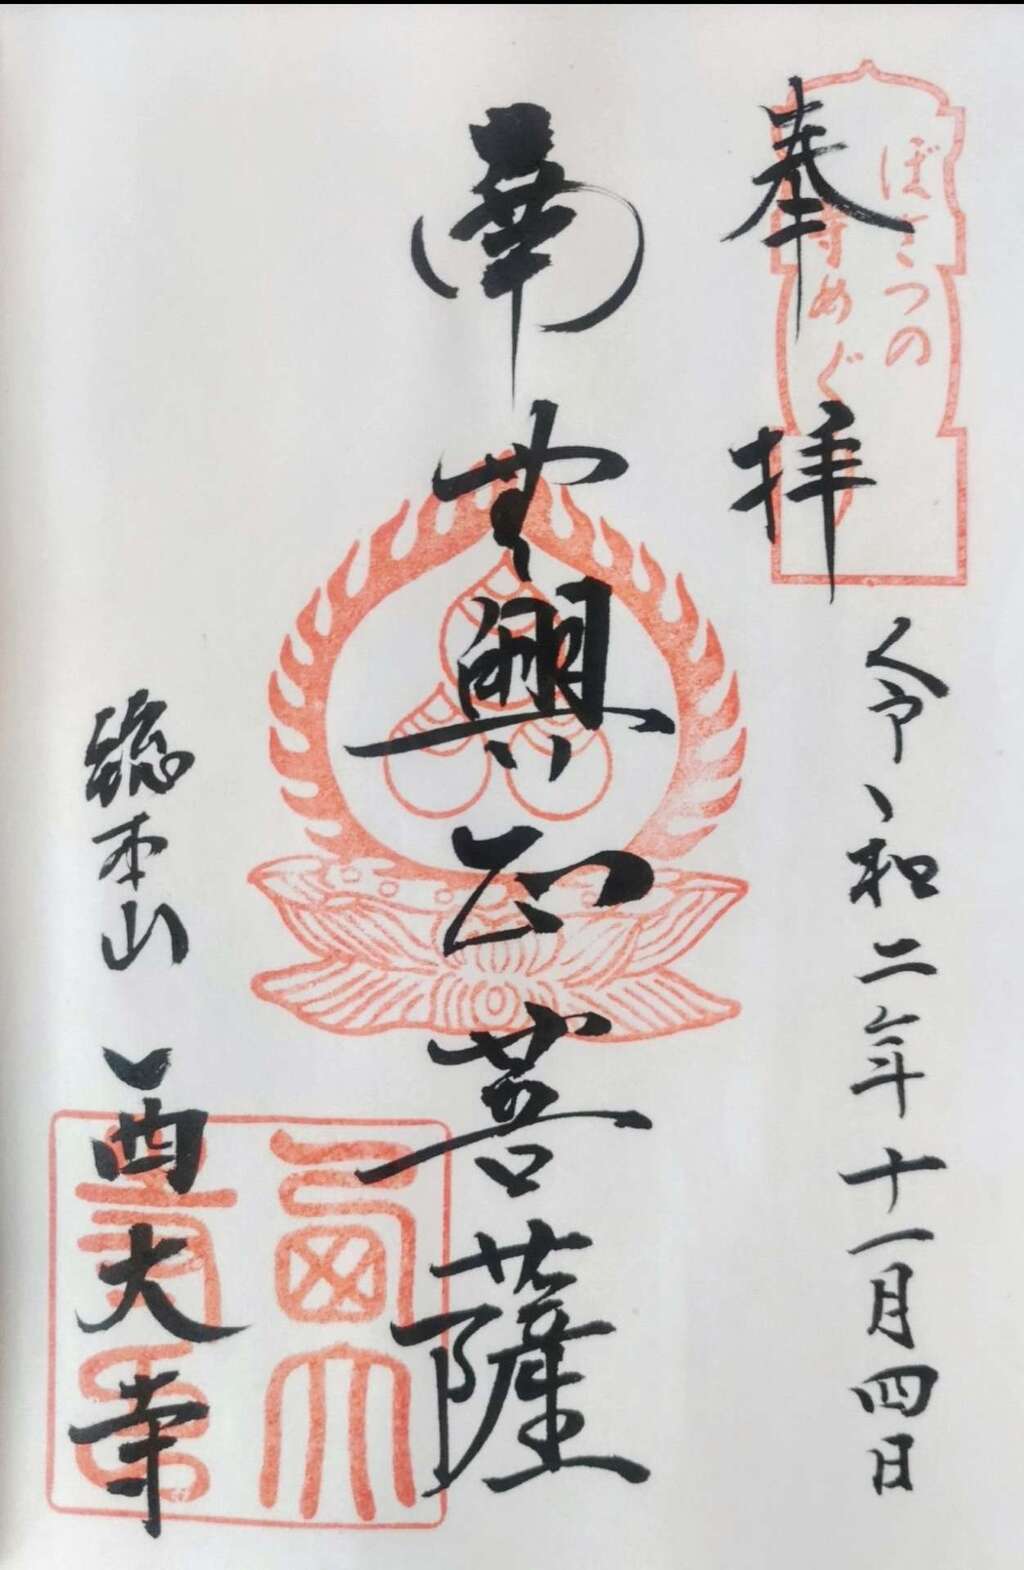 奉拝
ぼさつの
寺めぐり
令和二年十一月四日
南無興正菩薩
総本山
西大寺